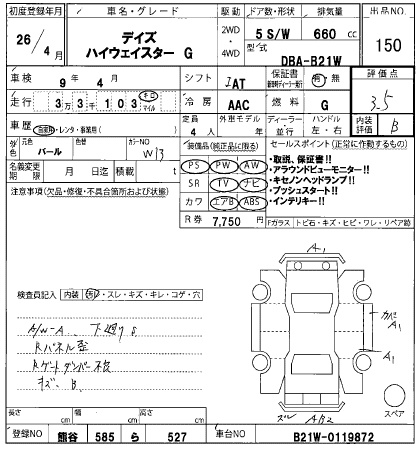 初度登録年月
車名・グレード
駆動
ドア数・形状
排気量
出品NO.
26/4月
デイズ
ハイウェイスター G
2WD
・
4WD
5 S/W
660 cc
型式
DBA-B21W
150
車検
9年4月
シフト
IAT
保証書
有・無
評価点
3.5
走行
3万3千103
キロ
マイル
冷房
AAC
燃料
G
内装評価
B
車歴
自家用・レンタ・事業用( )
定員
4人
外車モデル
年
ディーラー
並行
ハンドル
左・右
外色
元色
パール
色替
カラーNO
W13
装備品(純正品に限る)
セールスポイント(正常に作動するもの)
PS PW AW
SR TV ナビ
カワ エアB ABS
・取説、保証書!!
・アラウンドビューモニター!
・キセノンヘッドランプ!!
・プッシュスタート!!
・インテリキー!
名義変更期限
月 日迄
積載
t
注意事項(欠品・修復・不具合箇所および状態)
R券
7,750円
Fガラス
トビ石・キズ・ヒビ・ワレ・リペア跡
A1
検査員記入
内装
汚・スレ・キズ・キレ・コゲ・穴
A/W-A 下廻りS
Rパネル歪
Rゲートダンパー不良
キズ B
カバ
A1
A1
スレ
AB2
スペア
長さ
cm
幅
cm
高さ
cm
登録NO
熊谷
585
ら
527
車台NO
B21W-0119872